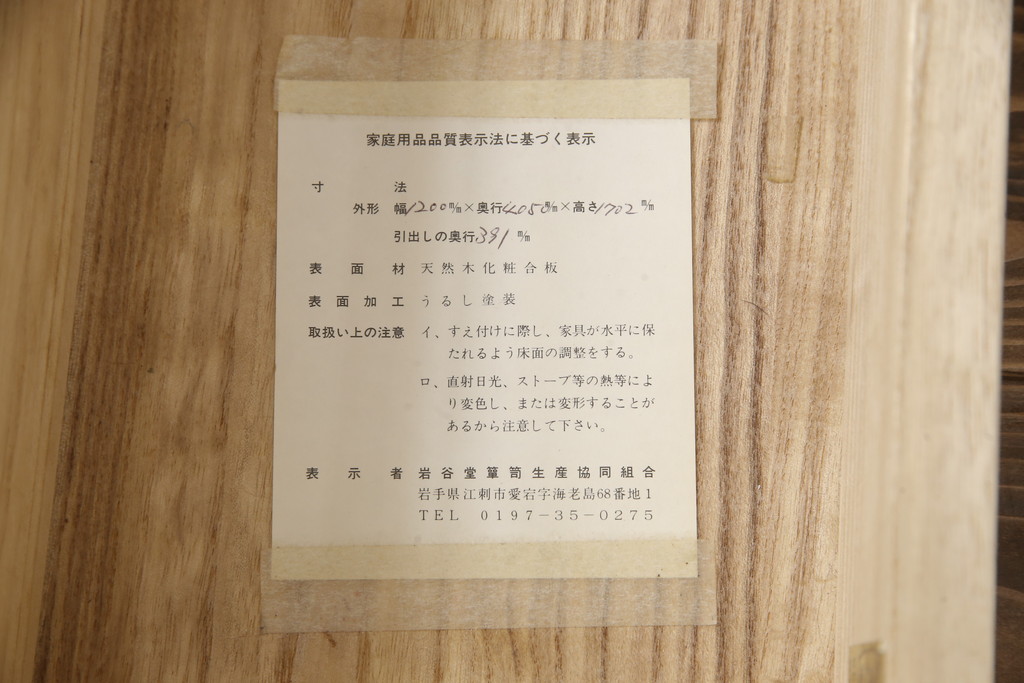 家庭用品品質表示法に基づく表示
寸法
外形 幅1200m/m×奥行405m/m×高さ1702m/m
引出しの奥行391m/m
表面材 天然木化粧合板
表面加工 うるし塗装
取扱い上の注意 イ、すえ付けに際し、家具が水平に保
たれるよう床面の調整をする。
ロ、直射日光、ストーブ等の熱等によ
り変色し、または変形することが
あるから注意して下さい。
表示者 岩谷堂簞笥生産協同組合
岩手県江刺市愛宕字海老島68番地1
TEL 0197-35-0275